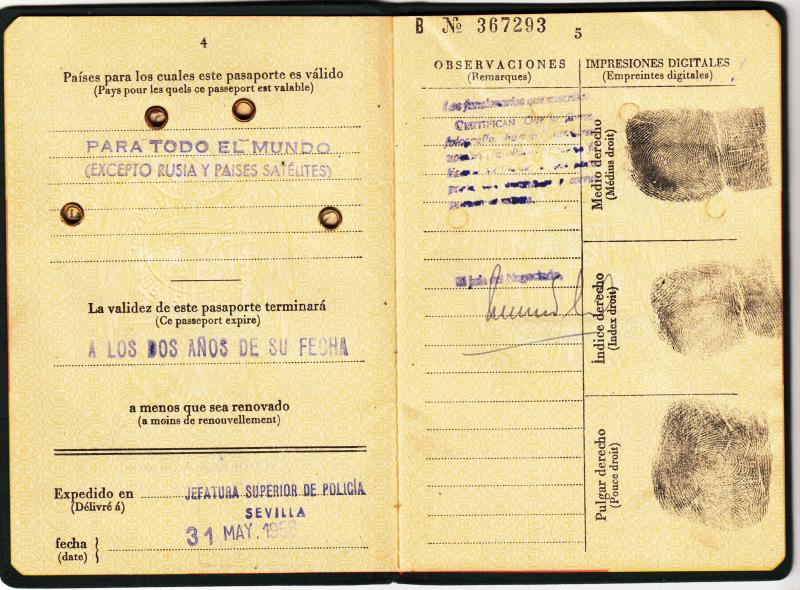 4
Países para los cuales este pasaporte es válido
(Pays pour les quels ce passeport est valable)
PARA TODO EL MUNDO
(EXCEPTO RUSIA Y PAISES SATÉLITES)
La validez de este pasaporte terminará
(Ce passeport expire)
A LOS DOS AÑOS DE SU FECHA
a menos que sea renovado
(a moins de renouvellement)
Expedido en JEFATURA SUPERIOR DE POLICÍA
(Délivré á)
SEVILLA
31 MAY. 195
fecha
(date)
B № 367293
5
OBSERVACIONES
(Remarques)
Los funcionarios que suscriben
CERTIFICAN Que la
fotografía
El Jefe del Negociado,
IMPRESIONES DIGITALES
(Empreintes digitales)
Medio derecho
(Médius droit)
Índice derecho
(Index droit)
Pulgar derecho
(Pouce droit)